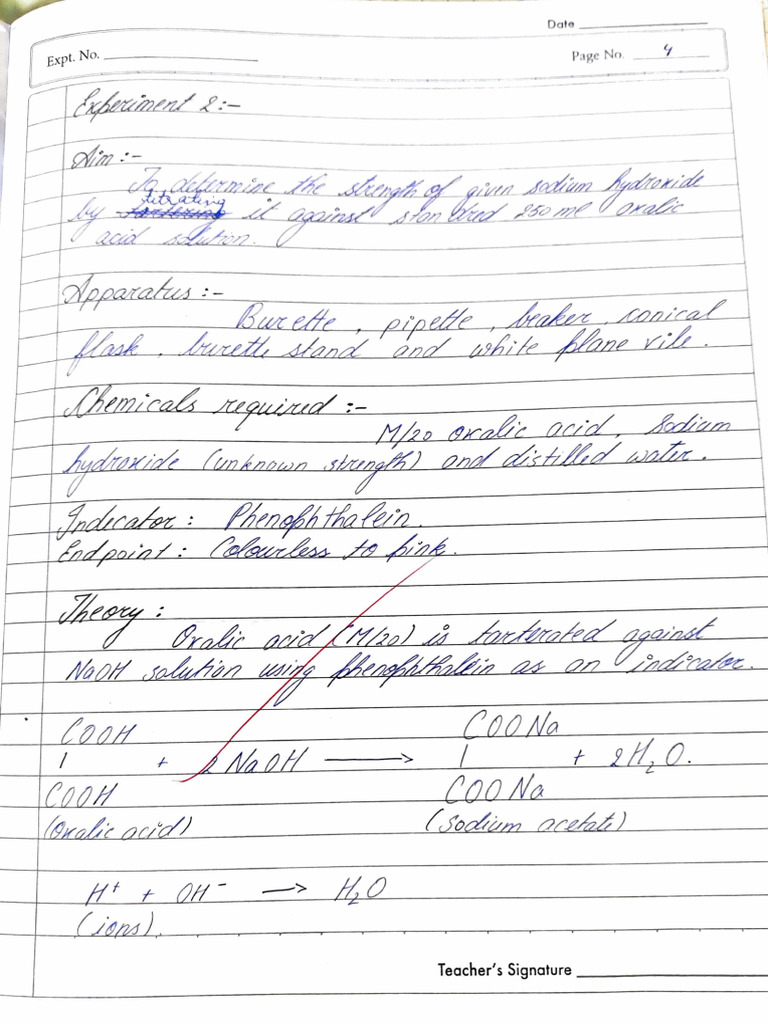 Date
Expt. No.
Page No. 4
Experiment 2 :-
Aim :-
To determine the strength of given sodium hydroxide
titrating
by it against standred 250 ml oxalic
acid solution.
Apparatus :-
Burette, pipette, beaker, conical
flask, burette stand and white plane vile.
Chemicals required :-
M/20 Oxalic acid, Sodium
hydroxide (unknown strength) and distilled water.
Indicator : Phenophthalein.
Endpoint : Colourless to pink.
Theory :
Oxalic acid (M/20) is tarterated against
NaOH solution using phenophthalein as an indicator.
COOH COONa
| + 2 NaOH ⟶ | + 2H₂O.
COOH COONa
(Oxalic acid) (Sodium acetate)
H⁺ + OH⁻ ⟶ H₂O
(ions).
Teacher's Signature